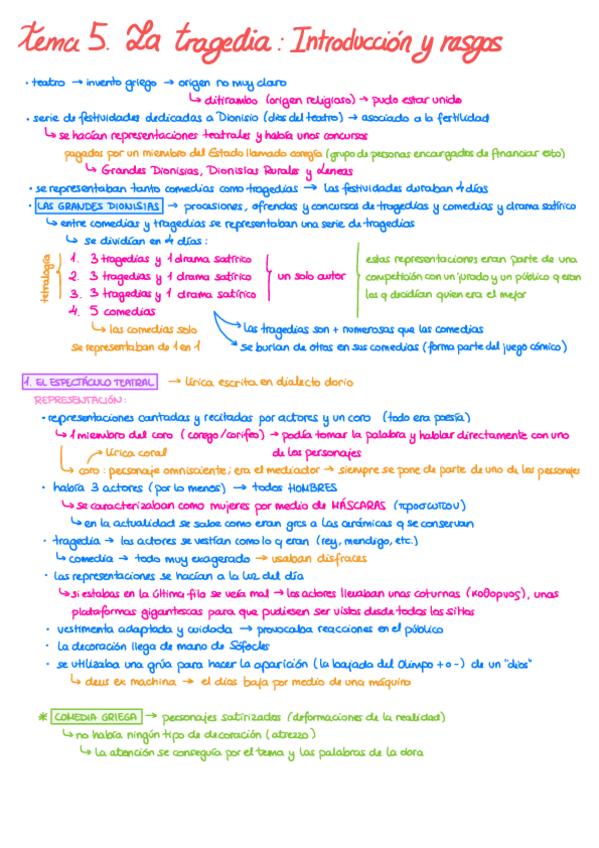 Tema 5. La tragedia: Introducción y rasgos
· teatro → invento griego → origen no muy claro
↳ ditirambo (origen religioso) → pudo estar unido
· serie de festividades dedicadas a Dionisio (dios del teatro) → asociado a la fertilidad
↳ se hacían representaciones teatrales y había unos concursos
pagados por un miembro del Estado llamado coregía (grupo de personas encargadas de financiar esto)
↳ Grandes Dionisias, Dionisias Rurales y Leneas
· se representaban tanto comedias como tragedias → las festividades duraban 4 días
· LAS GRANDES DIONISIAS → procesiones, ofrendas y concursos de tragedias y comedias y drama satírico
↳ entre comedias y tragedias se representaban una serie de tragedias
↳ se dividían en 4 días:
tetralogía
1. 3 tragedias y 1 drama satírico
2. 3 tragedias y 1 drama satírico
3. 3 tragedias y 1 drama satírico
4. 5 comedias
un solo autor
estas representaciones eran parte de una
competición con un jurado y un público q eran
los q decidían quien era el mejor
↳ las comedias solo
se representaban de 1 en 1
las tragedias son + numerosas que las comedias
se burlan de otros en sus comedias (forma parte del juego cómico)
1. EL ESPECTÁCULO TEATRAL → lírica escrita en dialecto dorio
REPRESENTACIÓN:
· representaciones cantadas y recitadas por actores y un coro (todo era poesía)
↳ 1 miembro del coro (corego/corifeo) → podía tomar la palabra y hablar directamente con uno
de los personajes
→ lírica coral
↳ coro: personaje omnisciente; era el mediador → siempre se pone de parte de uno de los personajes
· había 3 actores (por lo menos) → todos HOMBRES
↳ se caracterizaban como mujeres por medio de MÁSCARAS (προσωπον)
↳ en la actualidad se sabe como eran grcs a las cerámicas q se conservan
· tragedia → los actores se vestían como lo q eran (rey, mendigo, etc.)
↳ comedia → todo muy exagerado → usaban disfraces
· las representaciones se hacían a la luz del día
↳ si estabas en la última fila se veía mal → los actores llevaban unas coturnas (κοθορνος), unas
plataformas gigantescas para que pudiesen ser vistos desde todos los sitios
· vestimenta adaptada y cuidada → provocaba reacciones en el público
· la decoración llega de mano de Sófocles
· se utilizaba una grúa para hacer la aparición (la bajada del Olimpo + o -) de un "dios"
↳ deus ex machina → el dios baja por medio de una máquina
* COMEDIA GRIEGA → personajes satirizados (deformaciones de la realidad)
↳ no había ningún tipo de decoración (atrezzo)
↳ la atención se conseguía por el tema y las palabras de la obra